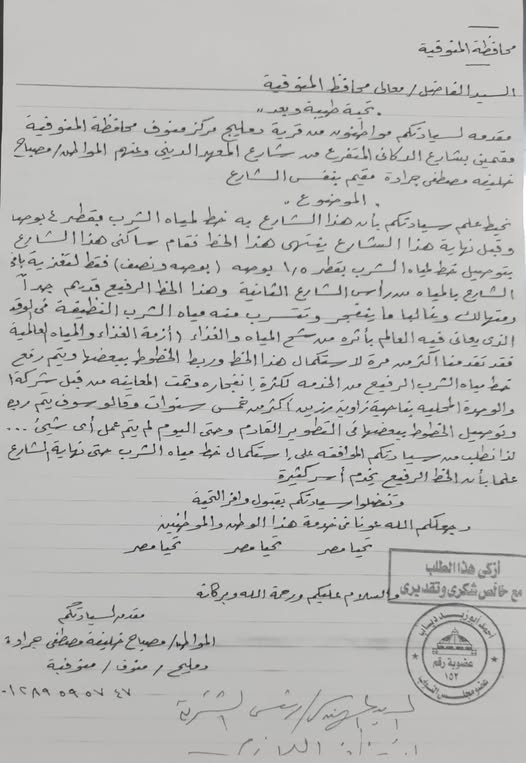 محافظة المنوفية
السيد الفاضل / معالى محافظ المنوفية
تحية طيبة وبعد ،،
مقدمه لسيادتكم مواطنون من قرية دمليج مركز منوف محافظة المنوفية
مقيمين بشارع الدكانى المتفرع من شارع المعهد الدينى وعنهم المواطن / مصباح
خليفه مصطفى جرادة مقيم بنفس الشارع
الموضوع
نحيط علم سيادتكم بأن هذا الشارع به خط لمياه الشرب بقطر ٤ بوصه
وقبل نهاية هذا الشارع ينتهى هذا الخط فقام ساكنى هذا الشارع
بتوصيل خط لمياه الشرب بقطر ١/٥ بوصه ( بوصه ونصف ) فقط لتغذية باقى
الشارع بالمياه من رأس الشارع الثانية وهذا الخط الرفيع قديم جداً
ومتهالك وغالبا ما ينفجر وتتسرب منه مياه الشرب النظيفة فى الوقت
الذى يعانى فيه العالم بأثره من شح المياه والغذاء ( أزمة الغذاء والمياه العالمية
فقد تقدمنا أكثر من مرة لاستكمال هذا الخط وربط الخطوط ببعضها ويتم رفع
خط مياه الشرب الرفيع من الخدمه لكثرة إنفجاره وتمت المعاينه من قبل شركة
والوحدة المحلية بناحية زاوية رزين أكثر من خمس سنوات وقالو سوف يتم ربط
وتوصيل الخطوط ببعضها فى التطوير القادم وحتى اليوم لم يتم عمل أى شئ ...
لذا نطلب من سيادتكم الموافقه على إستكمال خط مياه الشرب حتى نهاية الشارع
علما بأن الخط الرفيع يخدم أسر كثيرة
وتفضلوا سيادتكم بقبول وافر التحية
وجعلكم الله عونا فى خدمة هذا الوطن والمواطنين
تحيا مصر تحيا مصر تحيا مصر
والسلام عليكم ورحمة الله وبركاته
أزكى هذا الطلب
مع خالص شكرى وتقديرى
أحمد أبوزيد دياب
عضوية رقم
١٥٢
عضو مجلس النواب
مقدم لسيادتكم
المواطن / مصباح خليفة مصطفى جرادة
دمليج / منوف / منوفية
٠١٢٨٩٥٩٥٧٤٧
السيد المهندس / رئيس الشركة
اللازم